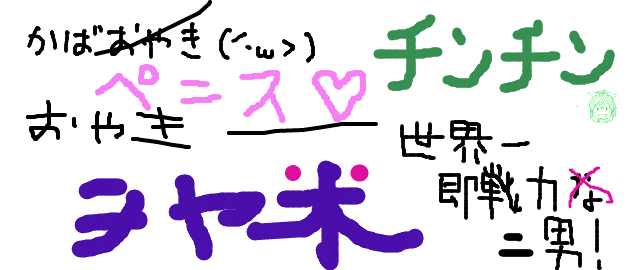 かばおやき(´・ω＞)
チンチン
ペニス♡
おやき
世界一
即戦力な
二男!
シャ米